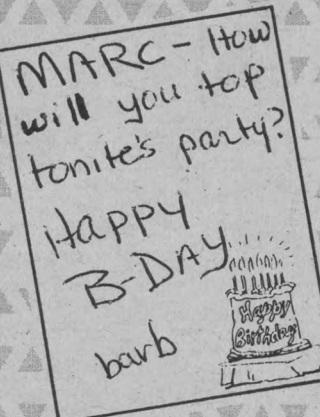 MARC - How
will you top
tonite's party?
Happy
B-DAY
barb
Happy
Birthday